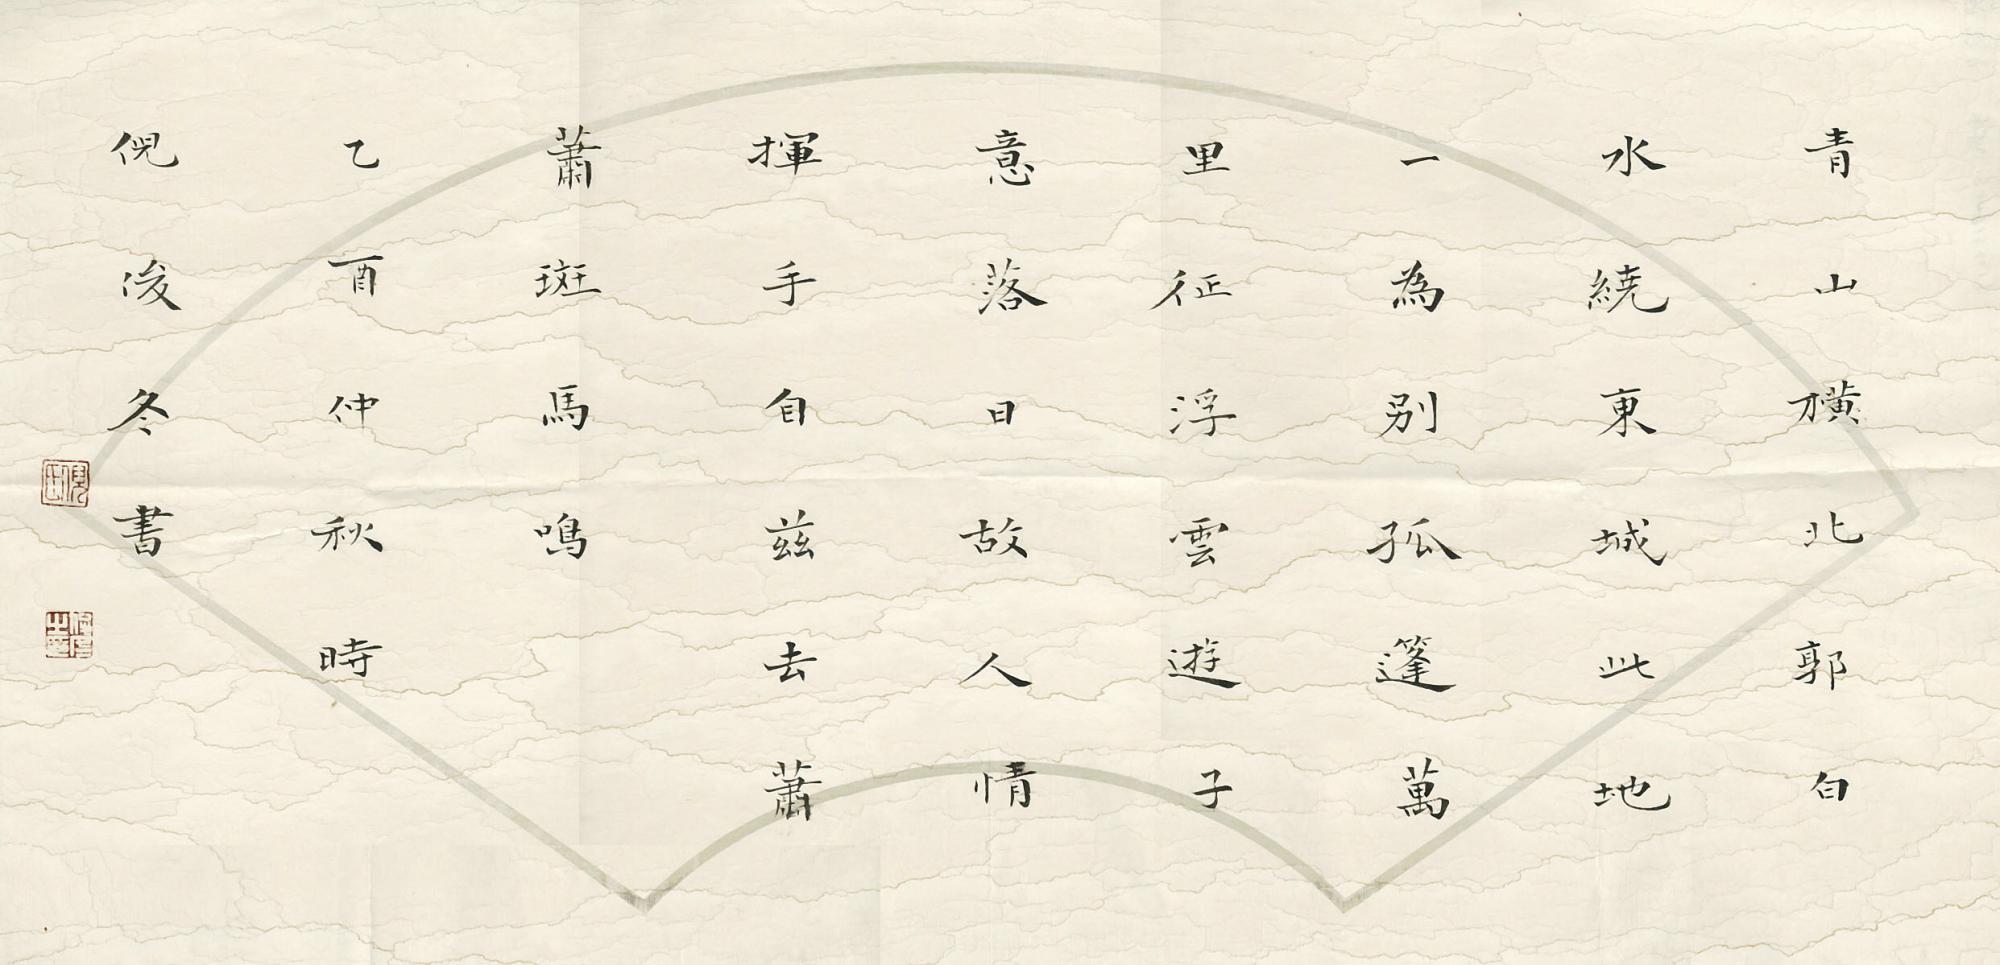 青山橫北郭白
水繞東城此地
一為別孤篷萬
里征浮雲遊子
意落日故人情
揮手自茲去蕭
蕭斑馬鳴
乙酉仲秋時
倪俊冬書
倪氏